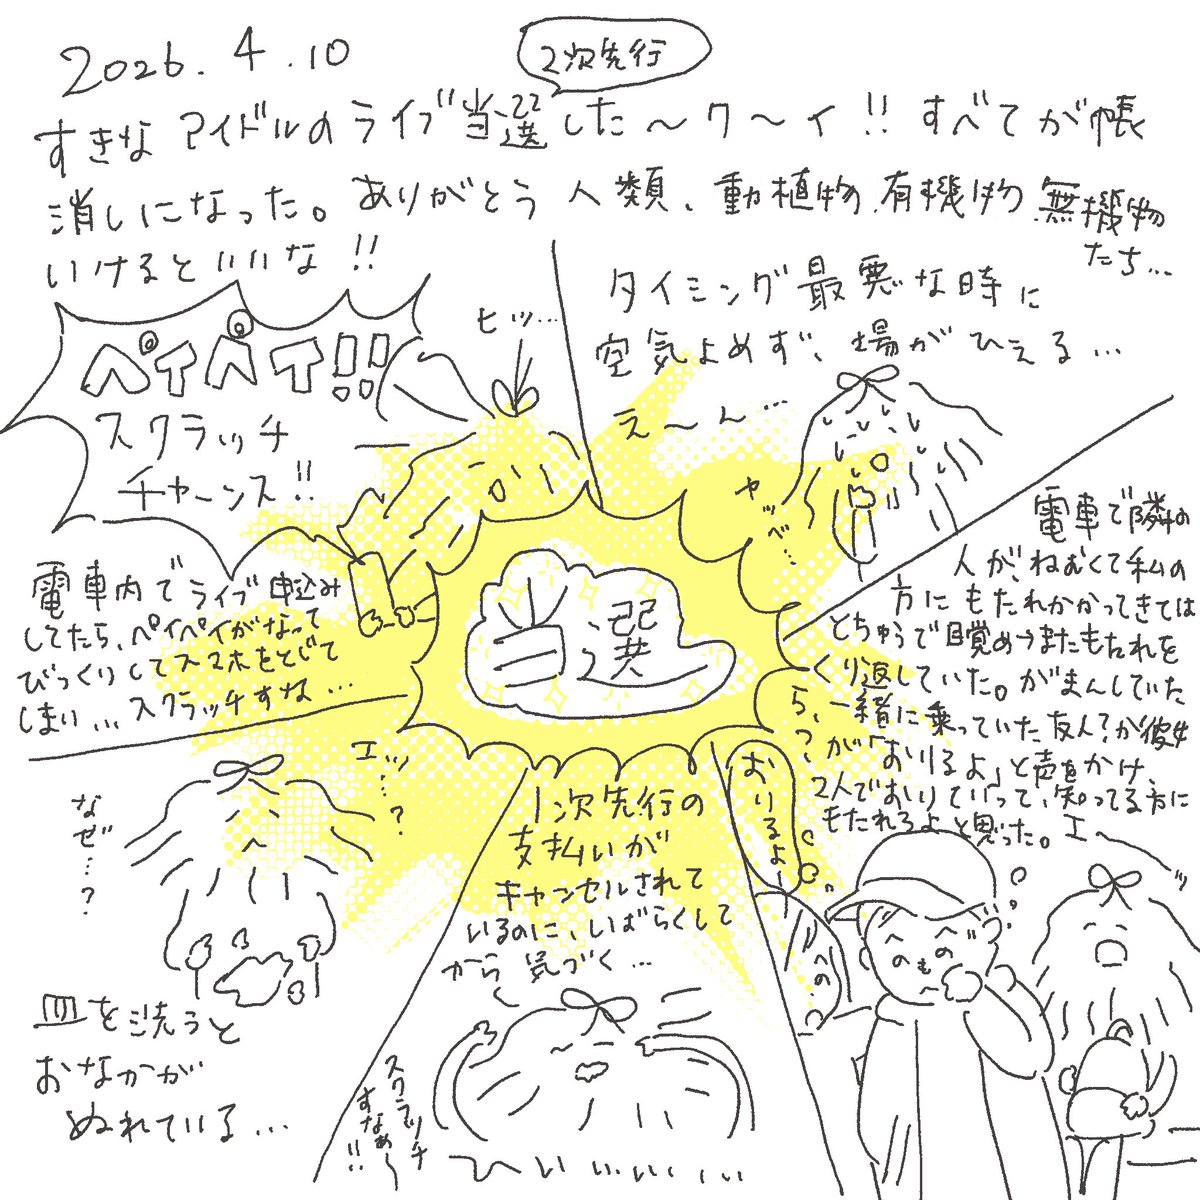 2026.4.10
2次先行
すきなアイドルのライブ当選した〜ワ〜イ!!すべてが帳
消しになった。ありがとう人類、動植物、有機物、無機物
たち…
いけるといいな!!
ペイペイ!!
スクラッチ
チャーンス!!
ヒッ…
電車内でライブ申込み
してたら、ペイペイがなって
びっくりしてスマホをとじて
しまい…スクラッチすな…
タイミング最悪な時に
空気よめず、場がひえる…
え〜ん…
ヤッベ…
電車で隣の
人が、ねむくて私の
方にもたれかかってきては
とちゅうで目覚め→またもたれを
くり返していた。がまんしていた
ら、一緒に乗っていた友人?か彼女
?が「おりるよ」と声をかけ、
2人でおりていって、知ってる方に
もたれろよと思った。エ〜ッ
おりるよー
へのへのもへじ
への
当選
エッ…?
なぜ…?
皿を洗うと
おなかが
ぬれている…
1次先行の
支払いが
キャンセルされて
いるのに、しばらくして
から気づく…
スクラッチ
すなぁ〜!!
ひぃぃぃぃ…